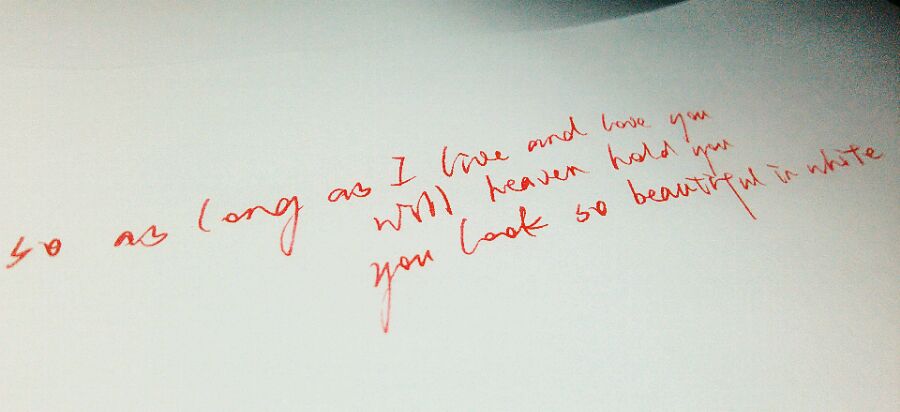 so as long as I live and love you
will heaven hold you
you look so beautiful in white